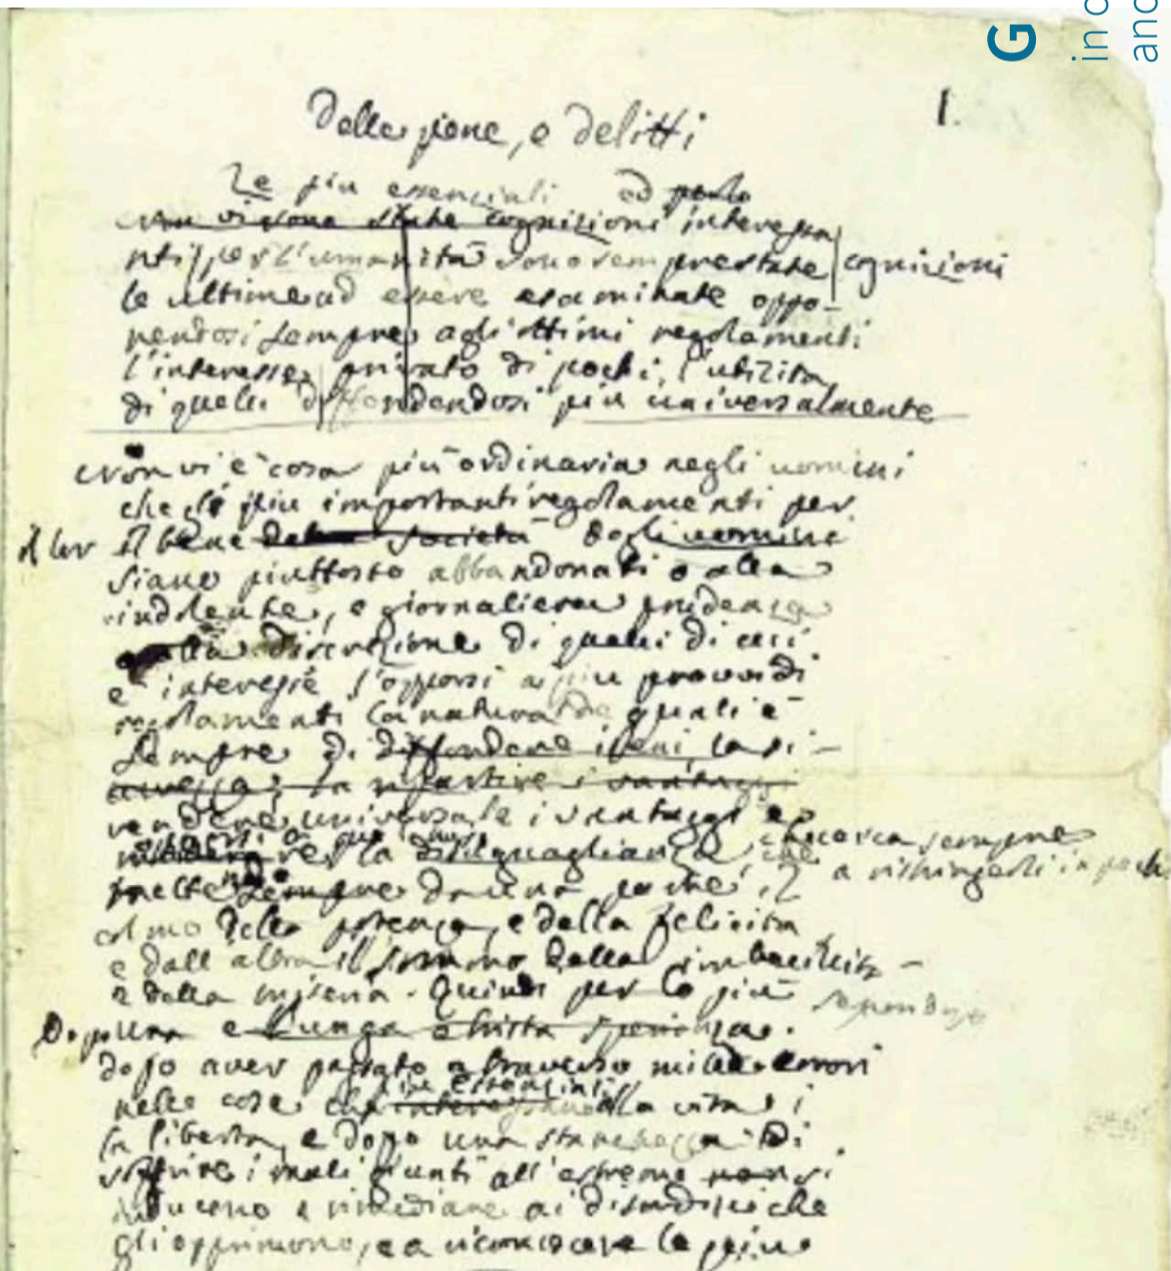 G
in c
and
1.
Delle pene, e delitti
Le piu essenziali ed
Non vi sono state cognizioni interessa
nti per l'umanità sono sempre state cognizioni
le ultime ad essere esaminate oppo-
nendosi sempre agli ottimi regolamenti
l'interesse privato di pochi, l'utilità
di quelli diffondendosi piu universalmente
Non vi è cosa più ordinaria negli uomini
che gli piu importanti regolamenti per
il lor il bene della società degli uomini
siano piuttosto abbandonati o alla
indolente, e giornaliera prudenza
o alla discrezione di quelli di cui
è interesse l'opporsi a piu provvidi
regolamenti la natura de quali è
sempre di diffondere i beni
la ripartire i vantaggi
rendere universale i vantaggi e
per la disuguaglianza che cerca sempre
sempre da una parte il a ristringerli in pochi
colmo della potenza, e della felicità
e dall altra il sommo della imbecilità
e della miseria. Quindi per lo più
Dopo una e lunga e trista sperienza.
dopo aver passato a traverso mille errori
piu essenziali
nelle cose che interessano alla vita, i
la libertà, e dopo una stanchezza di
soffrire i mali giunti all'estremo non si
inducono a rimediare ai disordini che
gli opprimono, e a riconoscere le più